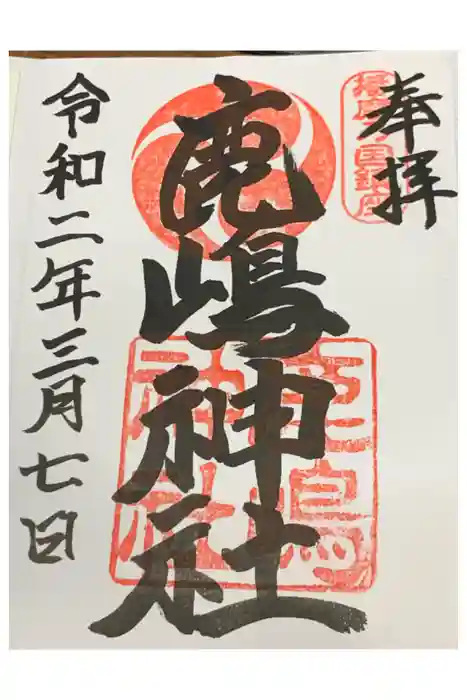 奉拝
鹿嶋神社
令和二年三月七日